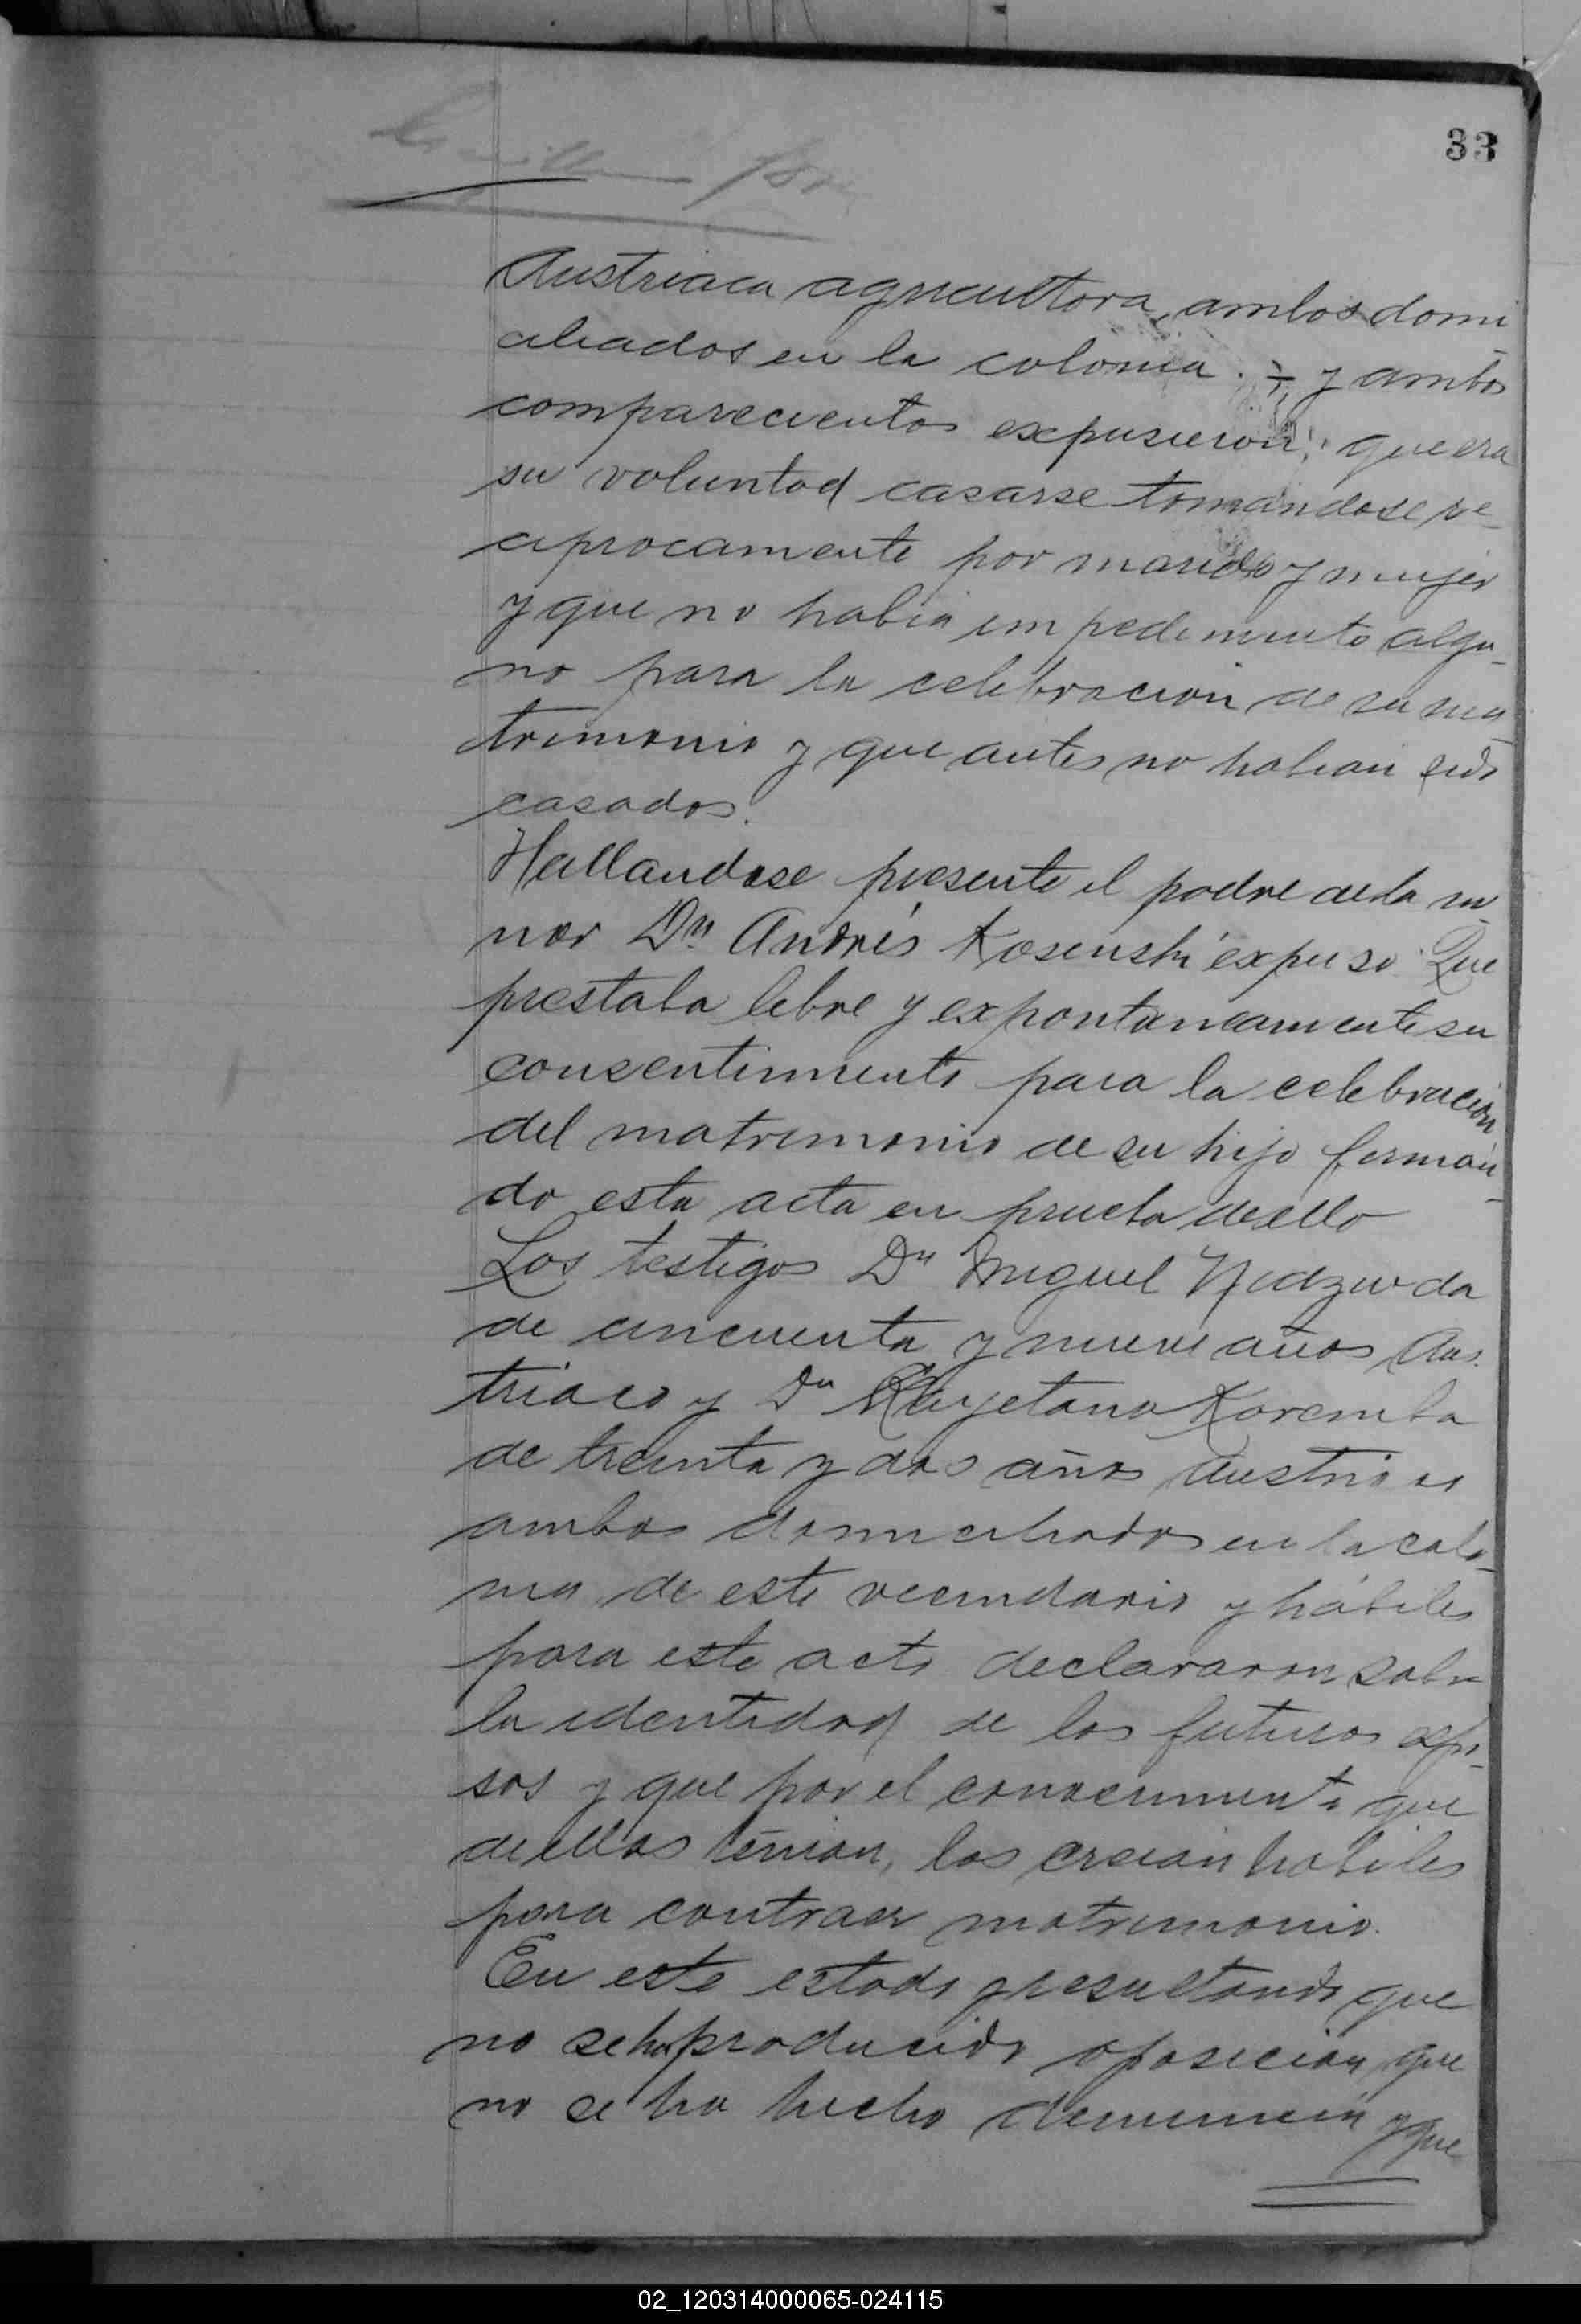 33
Austriaca agricultora, ambos domi
ciliados en la colonia. y ambos
comparecientes expusieron: que era
su voluntad casarse tomandose re-
ciprocamente por marido y mujer
y que no habia impedimento algu-
no para la celebracion de su ma-
trimonio y que antes no habian sido
casados.
Hallandose presente el padre de la me-
nor Dn Andrés Kosenski expuso: Que
prestaba libre y expontaneamente su
consentimiento para la celebración
del matrimonio de su hijo firman-
do esta acta en prueba de ello
Los testigos Dn Miguel
de cincuenta y nueve años Aus-
triaco y Dn Kayetano Koremba
de treinta y dos años Austriaco
ambos domiciliados en la colo-
nia de este vecindario y hábiles
para este acto declararon sobre
la identidad de los futuros espo-
sos y que por el conocimiento que
de ellos tenian, los creian habiles
para contraer matrimonio.
En este estado y resultando que
no se ha producido oposicion, que
no se ha hecho denuncia y que
02_120314000065-024115